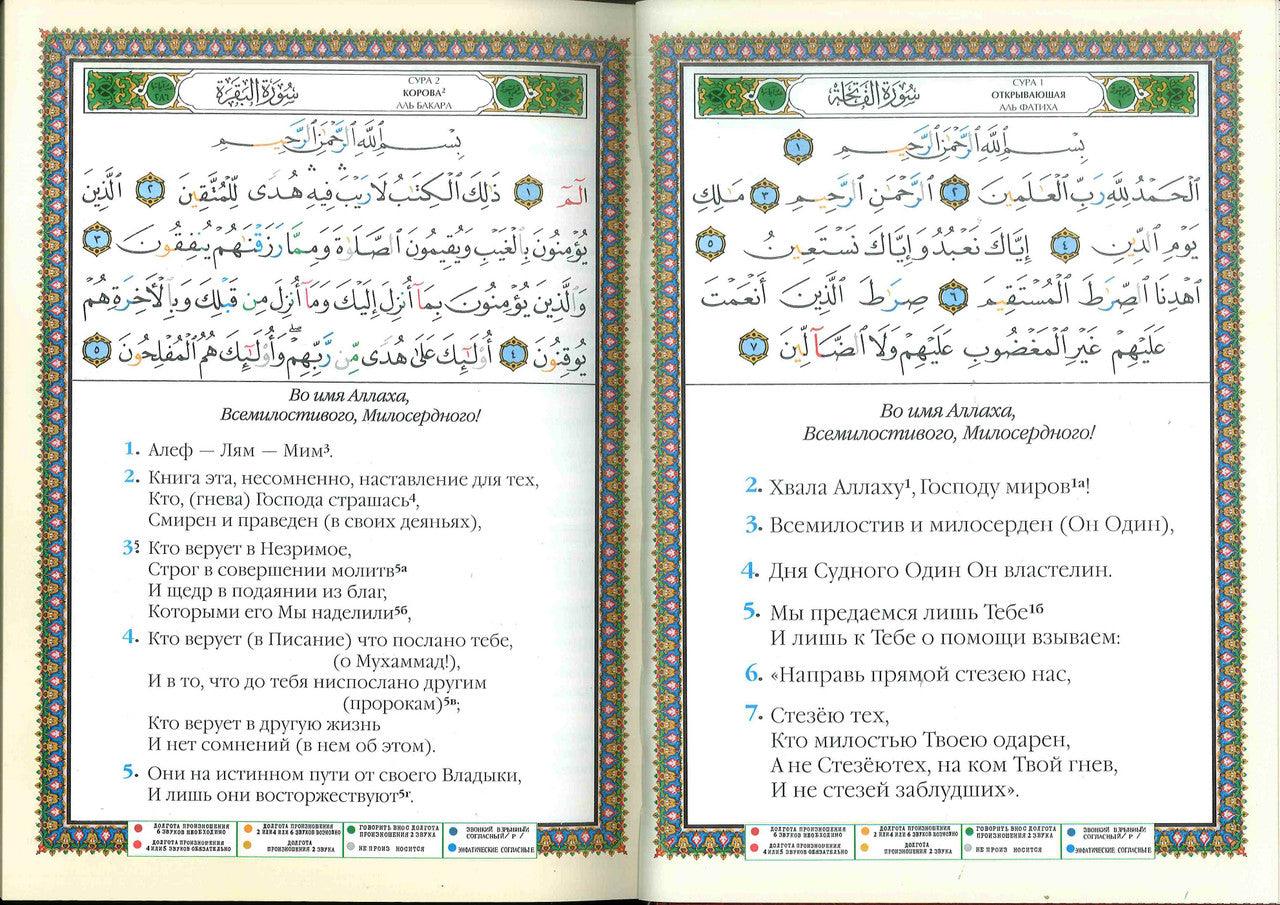 سُورَةُ الفَاتِحَةِ
СУРА 1
ОТКРЫВАЮЩАЯ
АЛЬ ФАТИХА
بِسْمِ ٱللَّهِ ٱلرَّحْمَٰنِ ٱلرَّحِيمِ ١
ٱلْحَمْدُ لِلَّهِ رَبِّ ٱلْعَٰلَمِينَ ٢ ٱلرَّحْمَٰنِ ٱلرَّحِيمِ ٣ مَٰلِكِ
يَوْمِ ٱلدِّينِ ٤ إِيَّاكَ نَعْبُدُ وَإِيَّاكَ نَسْتَعِينُ ٥
ٱهْدِنَا ٱلصِّرَٰطَ ٱلْمُسْتَقِيمَ ٦ صِرَٰطَ ٱلَّذِينَ أَنْعَمْتَ
عَلَيْهِمْ غَيْرِ ٱلْمَغْضُوبِ عَلَيْهِمْ وَلَا ٱلضَّآلِّينَ ٧
Во имя Аллаха,
Всемилостивого, Милосердного!
2. Хвала Аллаху¹, Господу миров¹ᵃ!
3. Всемилостив и милосерден (Он Один),
4. Дня Судного Один Он властелин.
5. Мы предаемся лишь Тебе¹ᵇ
И лишь к Тебе о помощи взываем:
6. «Направь прямой стезею нас,
7. Стезёю тех,
Кто милостью Твоею одарен,
А не Стезёютех, на ком Твой гнев,
И не стезей заблудших».
ДОЛГОТА ПРОИЗНОШЕНИЯ
6 ЗВУКОВ НЕОБХОДИМО
ДОЛГОТА ПРОИЗНОШЕНИЯ
4 ИЛИ 5 ЗВУКОВ ОБЯЗАТЕЛЬНО
ДОЛГОТА ПРОИЗНОШЕНИЯ
2 ИЛИ 4 ИЛИ 6 ЗВУКОВ ВОЗМОЖНО
ДОЛГОТА
ПРОИЗНОШЕНИЯ 2 ЗВУКА
ГОВОРИТЬ В НОС ДОЛГОТА
ПРОИЗНОШЕНИЯ 2 ЗВУКА
НЕ ПРОИЗ НОСИТСЯ
ЗВОНКИЙ ВЗРЫВНЫЙ
СОГЛАСНЫЙ / Р /
ЭМФАТИЧЕСКИЕ СОГЛАСНЫЕ
سُورَةُ البَقَرَةِ
СУРА 2
КОРОВА²
АЛЬ БАКАРА
بِسْمِ ٱللَّهِ ٱلرَّحْمَٰنِ ٱلرَّحِيمِ
الٓمٓ ١ ذَٰلِكَ ٱلْكِتَٰبُ لَا رَيْبَ ۛ فِيهِ ۛ هُدًى لِّلْمُتَّقِينَ ٢ ٱلَّذِينَ
يُؤْمِنُونَ بِٱلْغَيْبِ وَيُقِيمُونَ ٱلصَّلَوٰةَ وَمِمَّا رَزَقْنَٰهُمْ يُنفِقُونَ ٣
وَٱلَّذِينَ يُؤْمِنُونَ بِمَآ أُنزِلَ إِلَيْكَ وَمَآ أُنزِلَ مِن قَبْلِكَ وَبِٱلْءَاخِرَةِ هُمْ
يُوقِنُونَ ٤ أُو۟لَٰٓئِكَ عَلَىٰ هُدًى مِّن رَّبِّهِمْ ۖ وَأُو۟لَٰٓئِكَ هُمُ ٱلْمُفْلِحُونَ ٥
Во имя Аллаха,
Всемилостивого, Милосердного!
1. Алеф — Лям — Мим³.
2. Книга эта, несомненно, наставление для тех,
Кто, (гнева) Господа страшась⁴,
Смирен и праведен (в своих деяньях),
3⁵. Кто верует в Незримое,
Строг в совершении молитв⁵ᵃ
И щедр в подаянии из благ,
Которыми его Мы наделили⁵ᵇ,
4. Кто верует (в Писание) что послано тебе,
(о Мухаммад!),
И в то, что до тебя ниспослано другим
(пророкам)⁵ᵛ;
Кто верует в другую жизнь
И нет сомнений (в нем об этом).
5. Они на истинном пути от своего Владыки,
И лишь они восторжествуют⁵ᵍ.
ДОЛГОТА ПРОИЗНОШЕНИЯ
6 ЗВУКОВ НЕОБХОДИМО
ДОЛГОТА ПРОИЗНОШЕНИЯ
4 ИЛИ 5 ЗВУКОВ ОБЯЗАТЕЛЬНО
ДОЛГОТА ПРОИЗНОШЕНИЯ
2 ИЛИ 4 ИЛИ 6 ЗВУКОВ ВОЗМОЖНО
ДОЛГОТА
ПРОИЗНОШЕНИЯ 2 ЗВУКА
ГОВОРИТЬ В НОС ДОЛГОТА
ПРОИЗНОШЕНИЯ 2 ЗВУКА
НЕ ПРОИЗ НОСИТСЯ
ЗВОНКИЙ ВЗРЫВНЫЙ
СОГЛАСНЫЙ / Р /
ЭМФАТИЧЕСКИЕ СОГЛАСНЫЕ